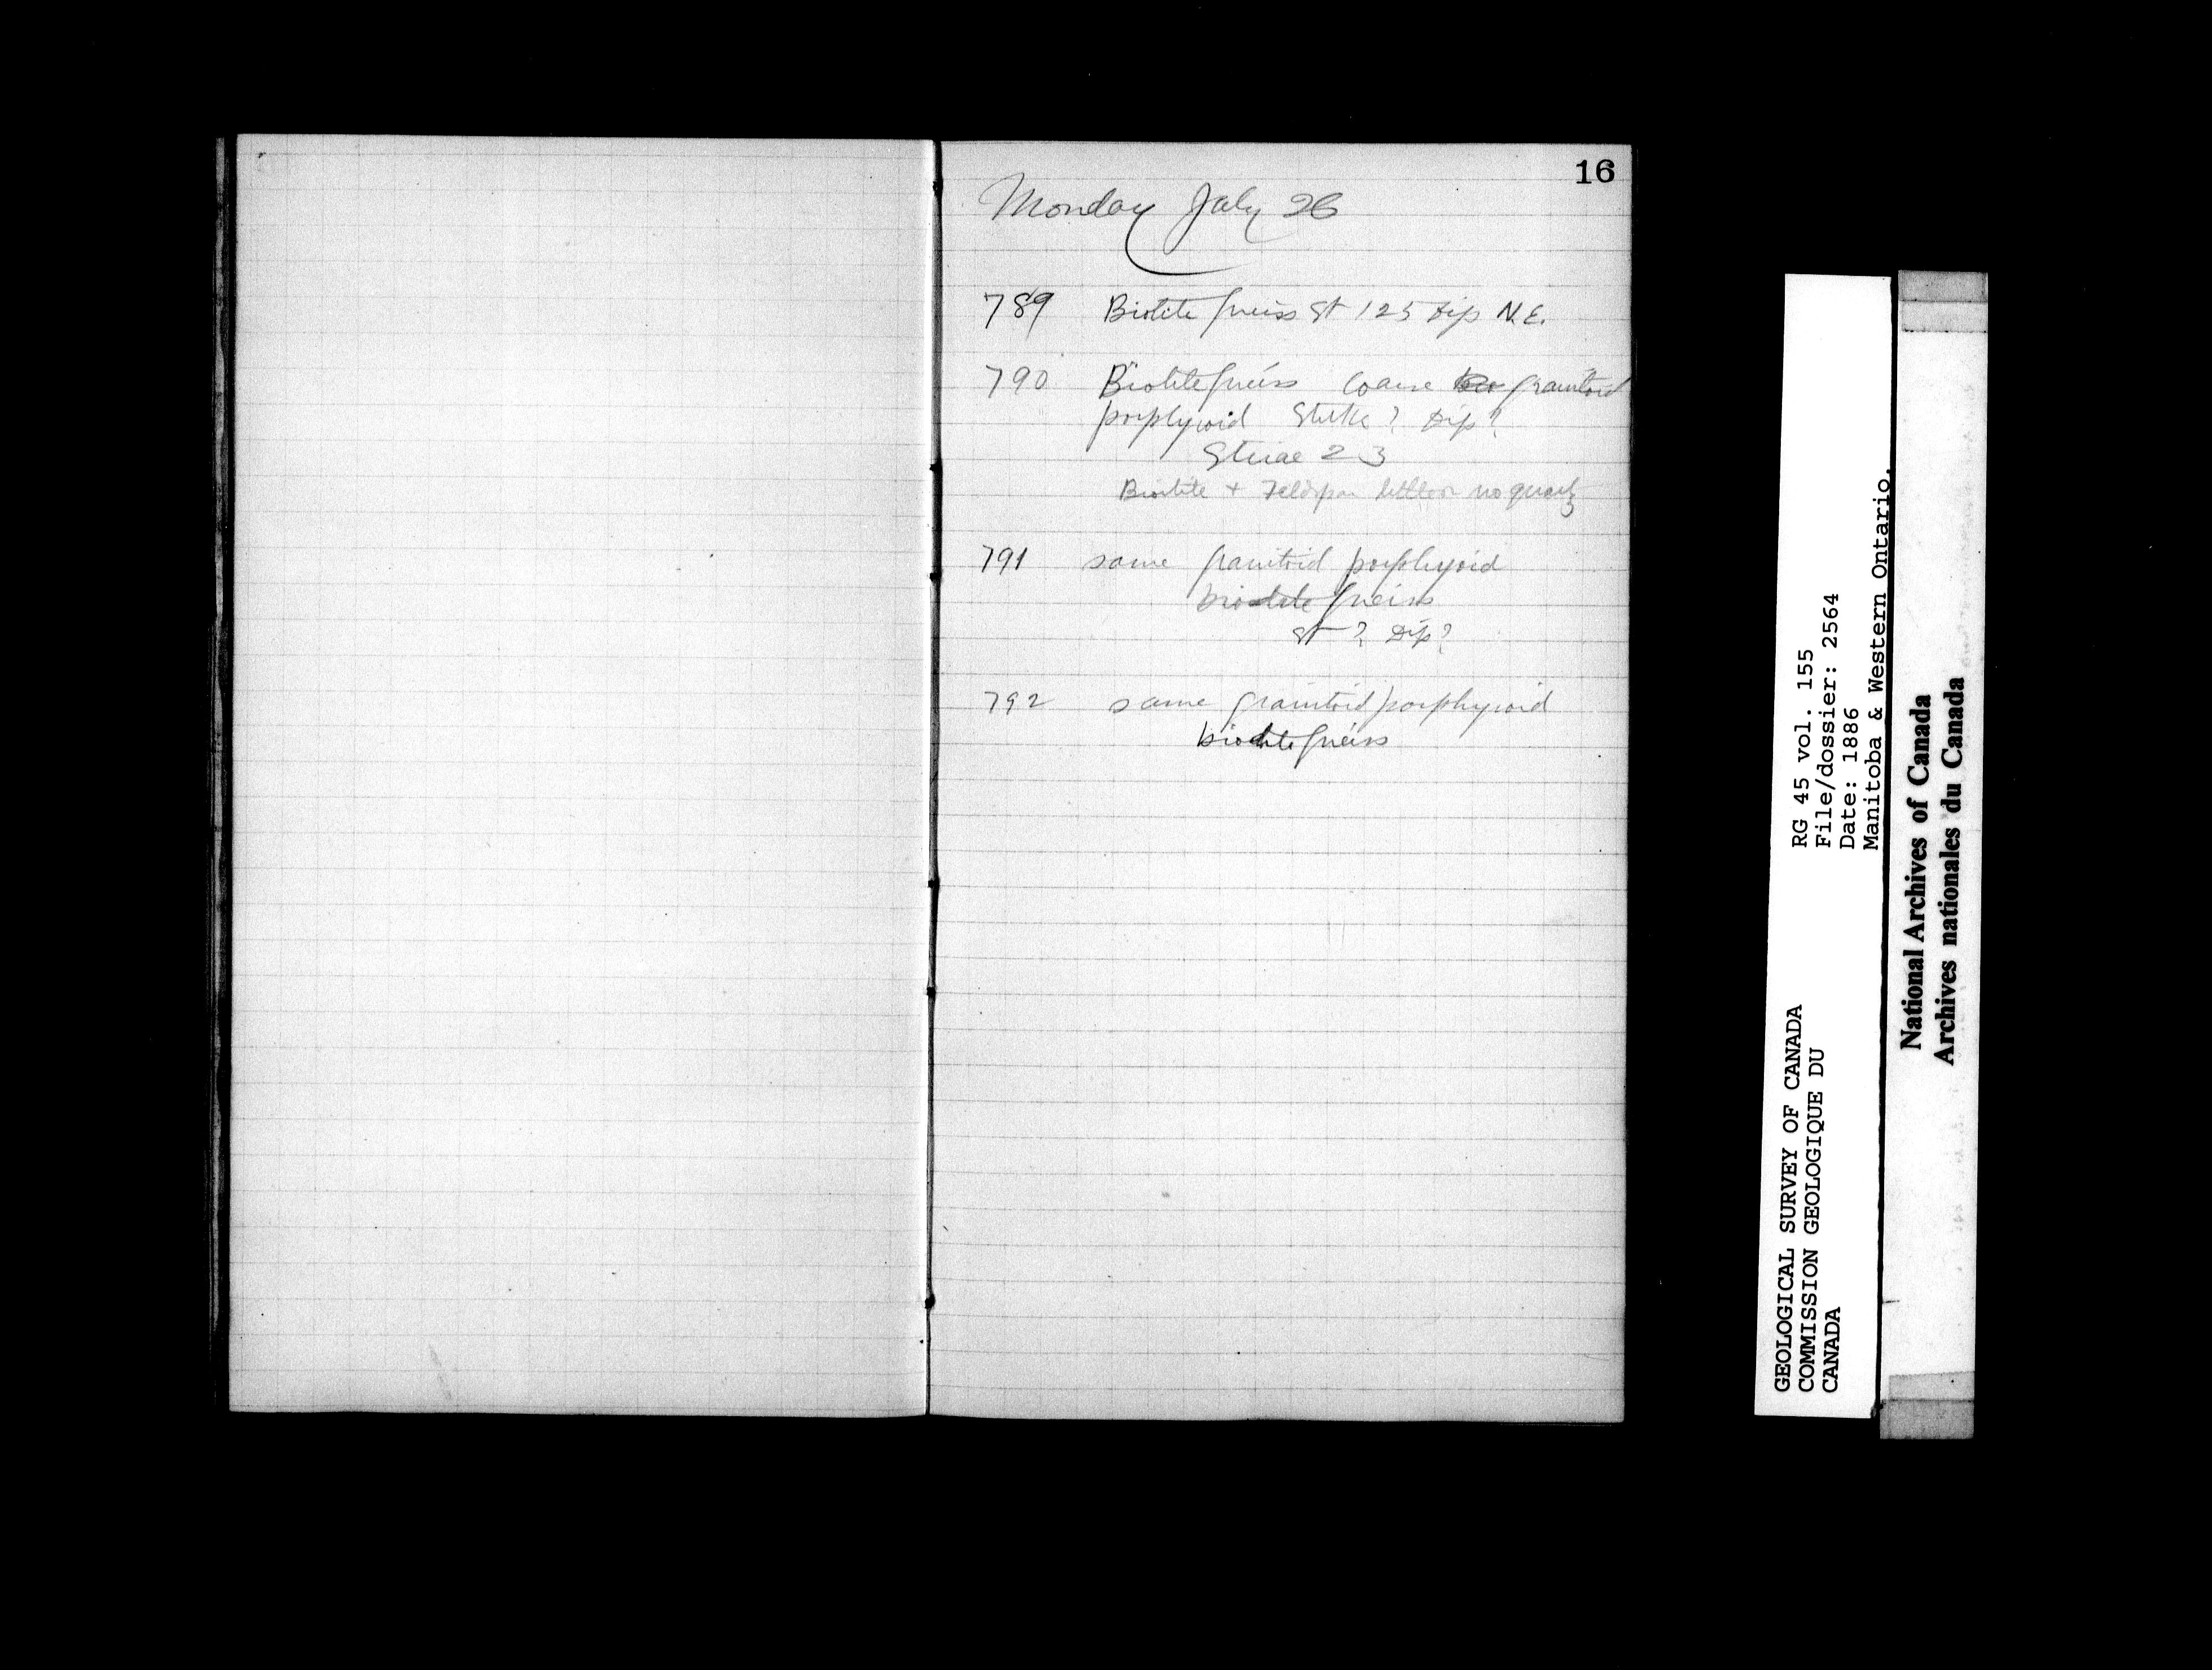 16
Monday July 26
789 Biotite gneiss St 125 Dip N.E.
790 Biotite gneiss coarse granitoid
porphyroid Strike? Dip?
Striae 23
Biotite + Feldspar little or no quartz
791 same granitoid porphyroid
biotite gneiss
St? Dip?
792 same granitoid porphyroid
biotite gneiss
GEOLOGICAL SURVEY OF CANADA
COMMISSION GEOLOGIQUE DU
CANADA
RG 45 vol. 155
File/dossier: 2564
Date: 1886
Manitoba & Western Ontario.
National Archives of Canada
Archives nationales du Canada